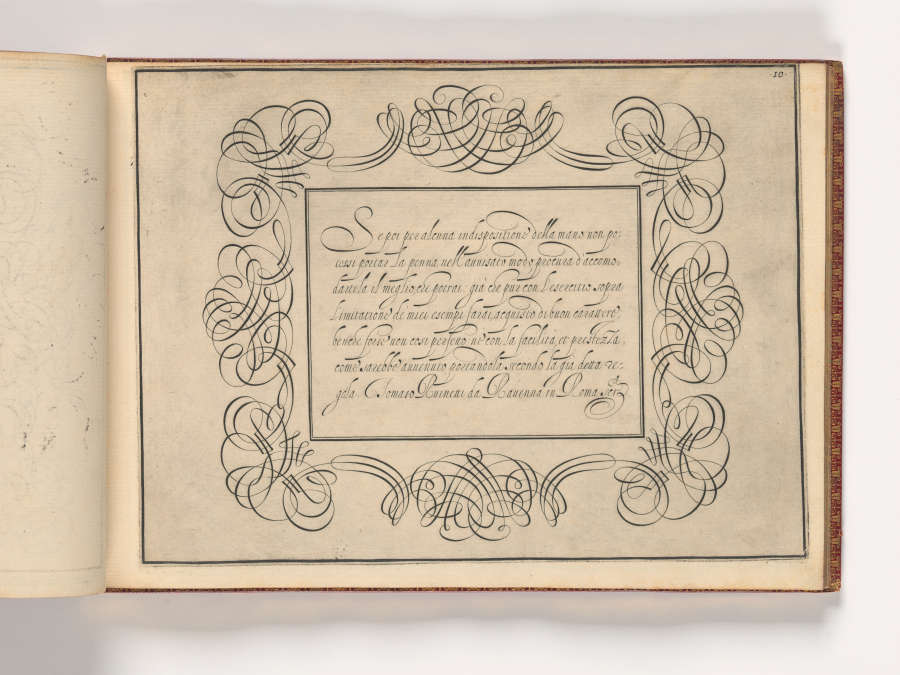 ·10·
Se poi per alcuna indispositione della mano non po,
tessi portar la penna nell'auuisato modo procura d'accomo,
dartela il meglio, che potrai; già che pur con l'esercitio sopra
l'imitatione de miei esempi farai acquisto di buon carattere,
benche forse non così perfetto, ne con la facilità, et prestezza,
come sarebbe auuenuto portandola secondo la già detta re,
gola. Tomaso Ruinetti da Rauenna in Roma scr.